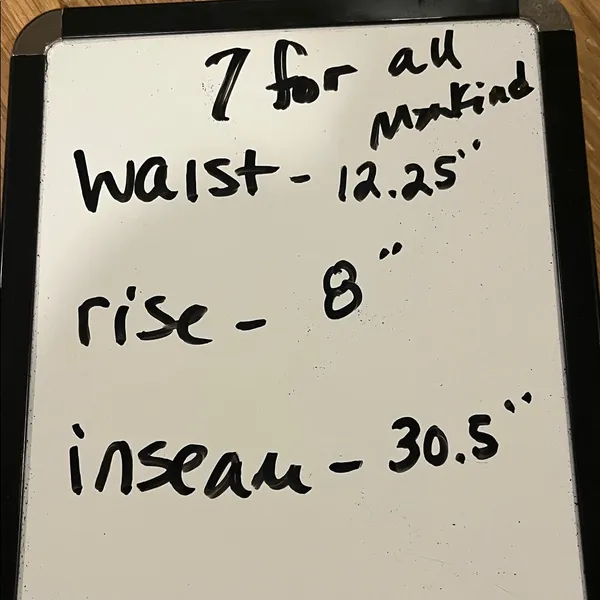 7 for all
Mankind
waist - 12.25"
rise - 8"
inseam - 30.5"